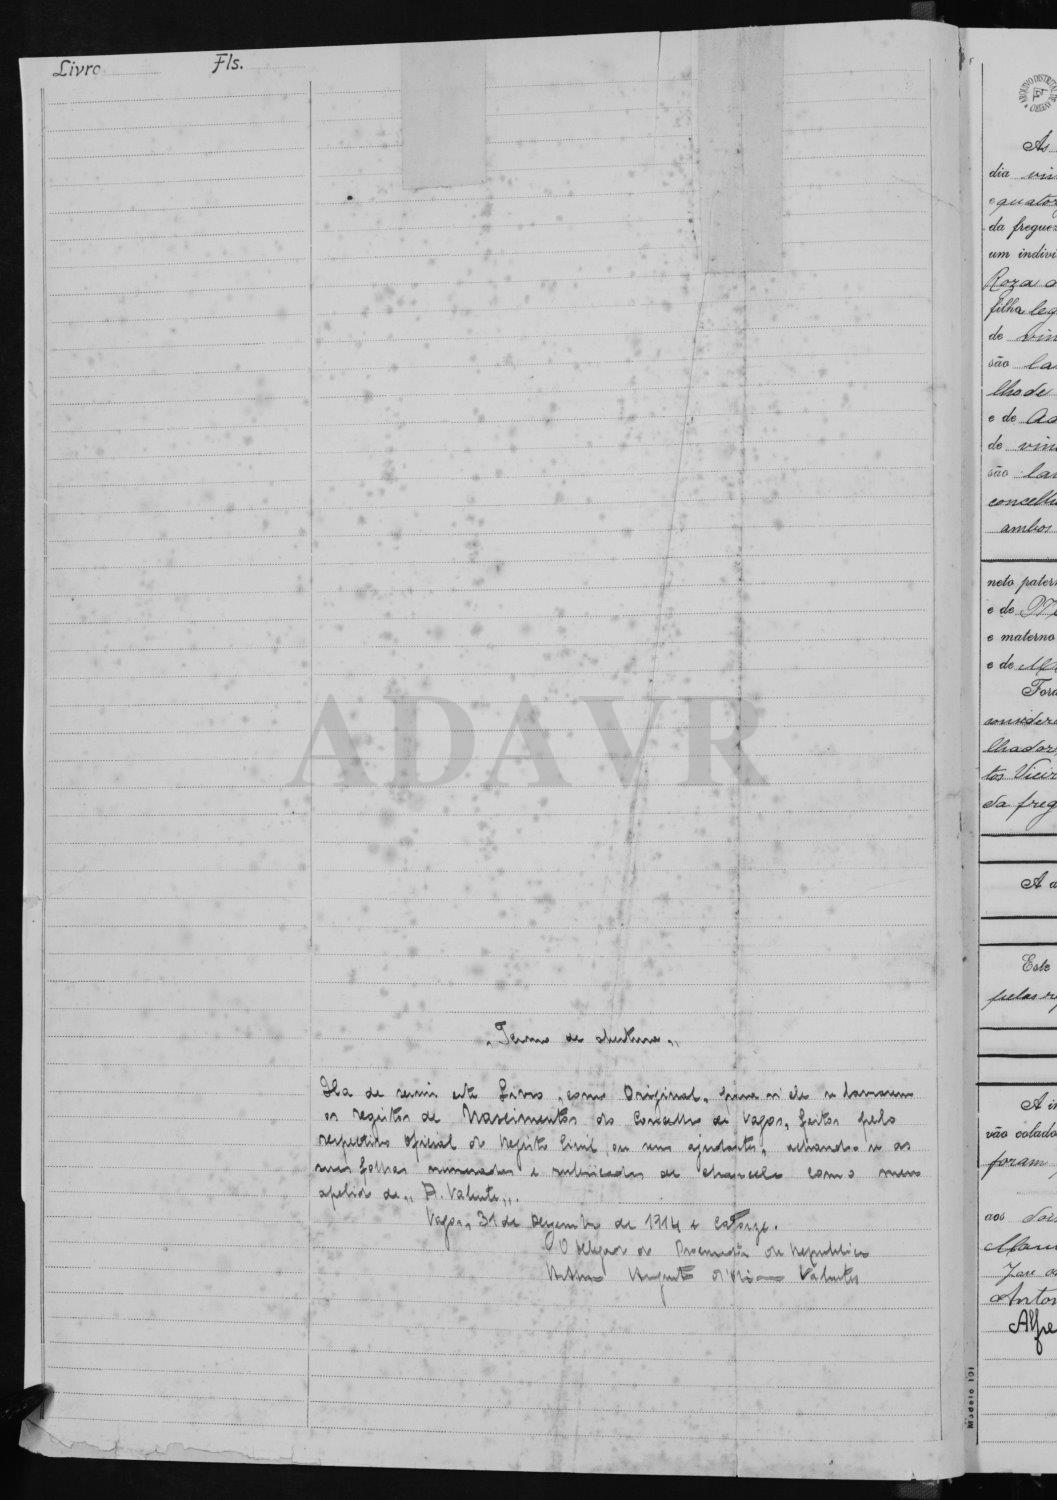 Livro Fls.
ADAVR
"Termo de abertura"
Ha de servir este Livro, como Original, para n'elle se lavrarem
os registos de Nascimentos do Concelho de Vagos, feitos pelo
respectivo Oficial do Registo Civil ou seus ajudantes, achando-se as
suas folhas numeradas e rubricadas de chancela com o meu
apelido de "A. Valente".
Vagos, 31 de Dezembro de 1914 e catorze.
O Delegado do Procurador da Republica
Valente
As
dia vin
e quator
da fregue
um indivi
Roza
filha leg
de vin
são la
lho de
e de
de vin
são lav
concelho
ambos
neto pater
e de
e materno
e de
Fora
considera
lhador
tos Vieir
da freg
A
Este
pelas
A
vão colado
foram
aos
Manu
Antón
Alfre
Modelo 101